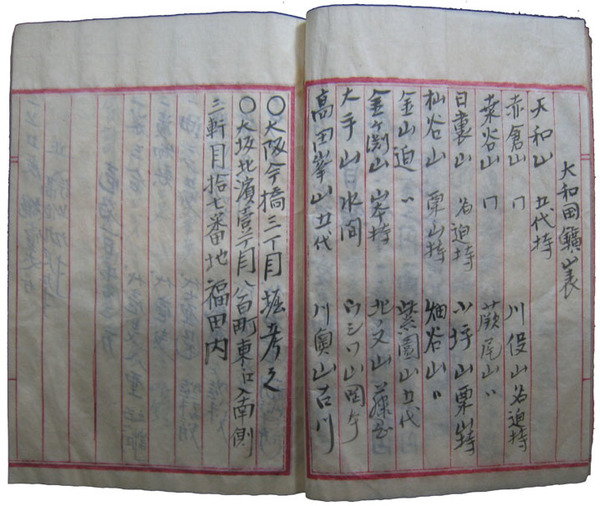 大和田鑛山表
大和山 五代持 川役山 名迫持
赤倉山 〃 蕨尾山 〃
桒谷山 〃
日裏山 名迫持 小坪山 栗山持
杣谷山 栗山持 畑谷山 〃
金山迫 〃 紫園山 五代
金ヶ渕山 岑持 北ノ又山
大手山 水間 ウシロ山 岡本
高田峯山 五代 川奥山 古川
〇大阪今橋三丁目 堀孝之
〇大坂北濱壹丁目八百町東口南側
三軒目拾七番地 福田内